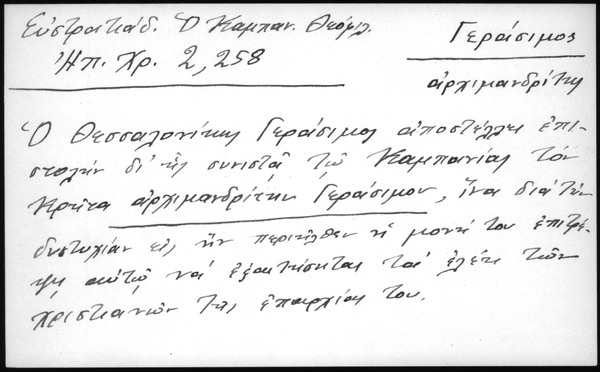 Εὐστρατιάδ. Ὁ Καμπαν. Θεόφιλ.
Ἠπ. Χρ. 2,258
Γεράσιμος
ἀρχιμανδρίτης
Ὁ Θεσσαλονίκης Γεράσιμος ἀποστέλλει ἐπι-
στολήν δι' ἧς συνιστᾷ τῷ Καμπανίας τόν
Κρῆτα ἀρχιμανδρίτην Γεράσιμον, ἵνα διά τήν
δυστυχίαν εἰς ἥν περιῆλθεν ἡ μονή του ἐπιτρέ-
ψῃ αὐτῷ νά ἐξαιτήσηται τά ἐλέη τῶν
χριστιανῶν τῆς ἐπαρχίας του.